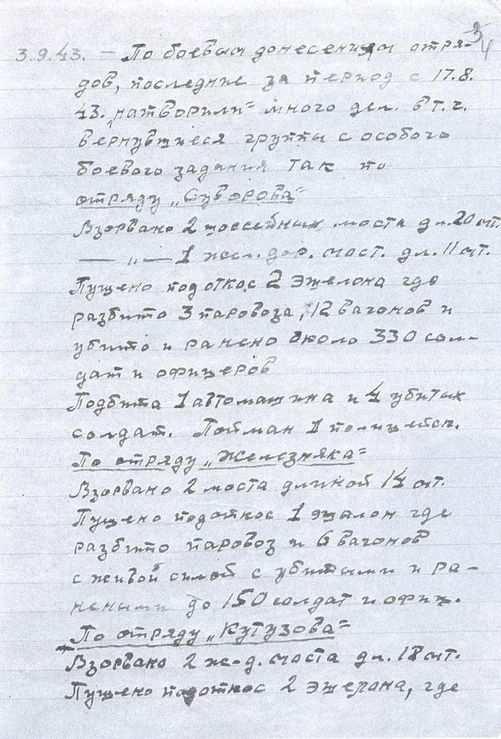 3.9.43. — По боевым донесениям отря-
дов, последние за период с 17.8.
43. „натворили" много дел. в т.ч.
вернувшиеся группы с особого
боевого задания так по
отряду „Суворова"
Взорвано 2 шоссейных моста дл. 20 мт.
— „ — 1 жел. дор. мост. дл. 11 мт.
Пущено под откос 2 эшелона где
разбито 3 паровоза, 12 вагонов и
убито и ранено около 330 сол-
дат и офицеров
Подбита 1 автомашина и 4 убитых
солдат. Пойман 1 полицейск.
По отряду „Железняка"
Взорвано 2 моста длиной 14 мт.
Пущено под откос 1 эшалон где
разбито паровоз и 6 вагонов
с живой силой с убитыми и ра-
неными до 150 солдат и офиц.
По отряду „Кутузова"
Взорвано 2 ж-д. моста дл. 18 мт.
Пущено под откос 2 эшелона, где